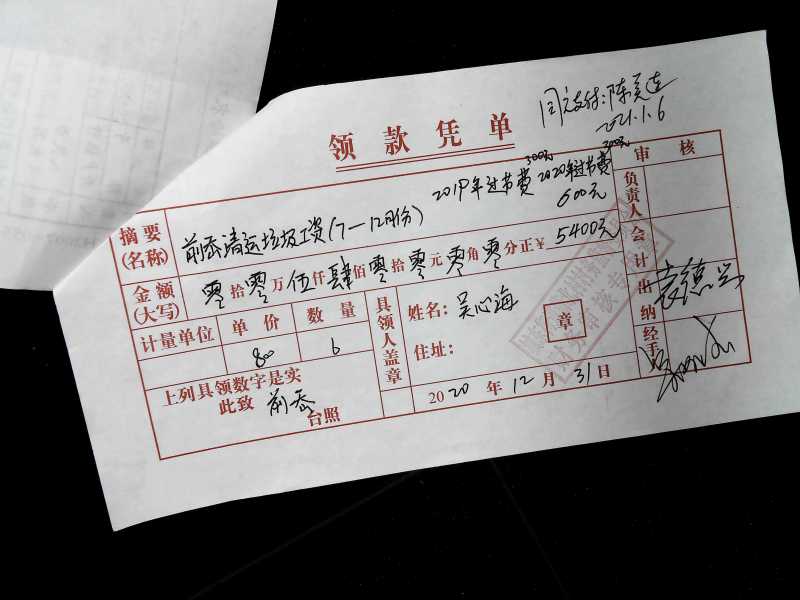 同意支付:陈
2021.1.6
领款凭单
审核
摘要
(名称)
前岙清运垃圾工资(7—12月份)
2019年过节费 300元
2020年过节费 300元
600元
负责人
金额
(大写)
零拾零万伍仟肆佰零拾零元零角零分正¥ 5400元
会计
计量单位 单价 数量
800 6
具领人盖章
姓名:吴心海
住址:
章
出纳
上列具领数字是实
此致 前岙
台照
2020年12月31日
经手